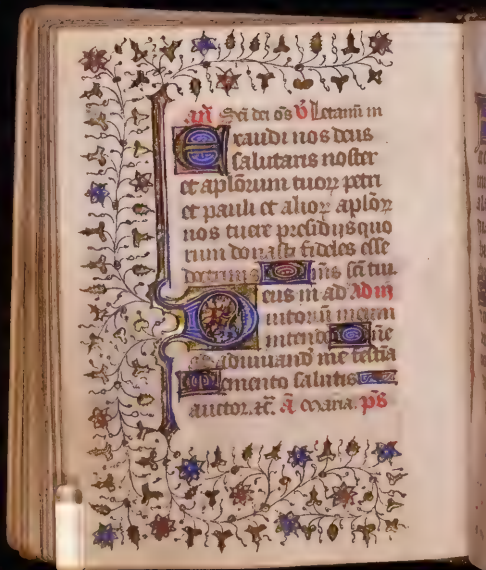 añ Sc̄i dei os̄ v̄ Letamī in
Exaudi nos deus
salutaris noster
et aplōrum tuoꝝ petri
et pauli et alioꝝ aplōꝝ
nos tuere presidijs quo
rum donasti fideles esse
doctrinis Om̄s sc̄i tui
Deus in ad Ad m̄
iutoriū meum
intende Dn̄e
ad adiuuand me festīa
Memento salutis
auctor. ⁊c̄. ā maria. p̄s